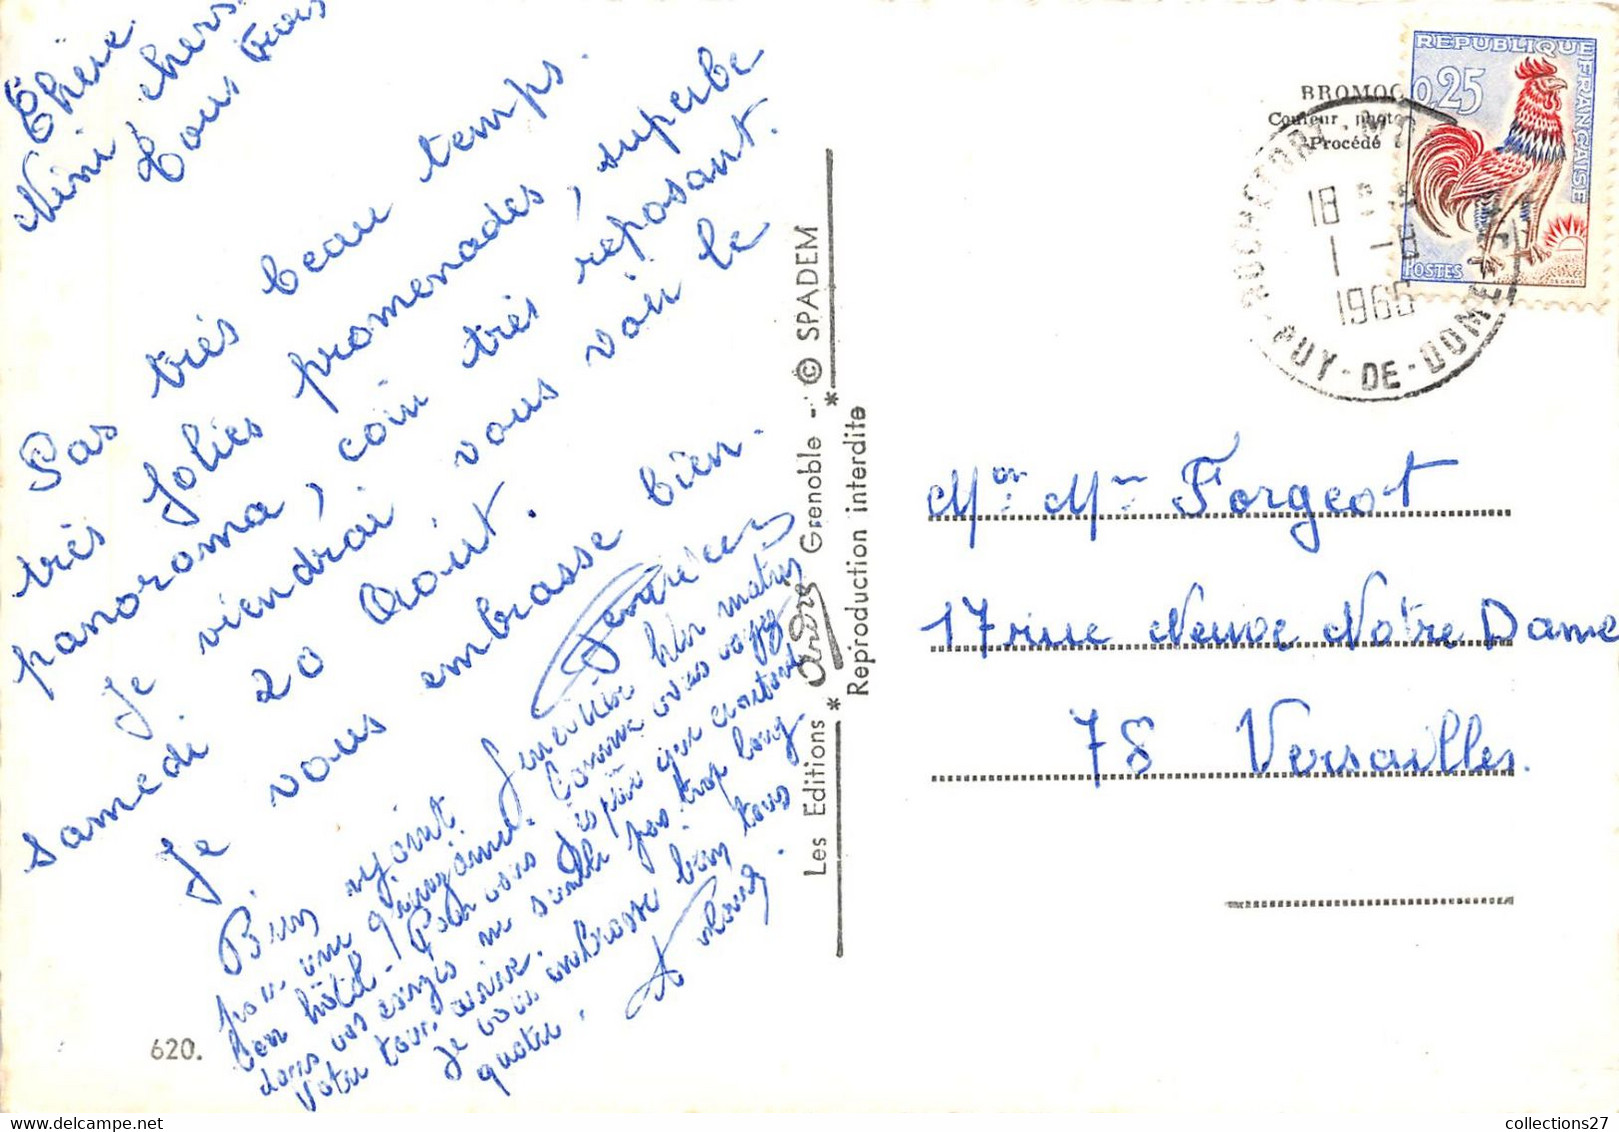 Chérie
Nini chers
tous trois
Pas très beau temps.
très jolies promenades, superbe
panorama, coin très reposant.
Je viendrai vous voir le
samedi 20 Août.
Je vous embrasse bien.
Bien rejoint hier matin
pour une quinzaine. Comme vous voyez
bon hôtel. Pour vous j'espère que
dans vos me semble pas trop long
votre tour arrive.
Je vous embrasse bien tous
quatre.
620.
Les Editions * André * Grenoble - © SPADEM
Reproduction interdite
BROMOC
Couleur photo
Procédé
REPUBLIQUE FRANÇAISE
0,25
POSTES
DECARIS
ROCHEFORT-MT
18 H
1 -8
1966
PUY-DE-DOME
Mr Mme Forgeot
17 rue Neuve Notre Dame
78 Versailles.
collections27